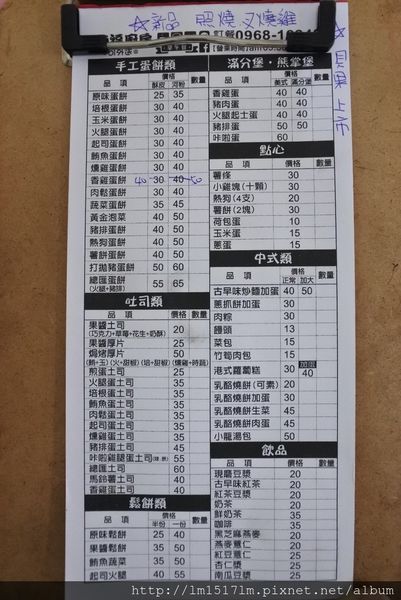 ☆新品 照燒叉燒雞
☆貝果上市
訂餐0968-1
【營業時間】am
手工蛋餅類
品項 價格 數量
酥皮 河粉
原味蛋餅 25 35
培根蛋餅 30 40
玉米蛋餅 30 40
火腿蛋餅 30 40
起司蛋餅 30 40
鮪魚蛋餅 30 40
燻雞蛋餅 30 40
香雞蛋餅 40 30 40 50
肉鬆蛋餅 30 40
蔬菜蛋餅 35 45
黃金泡菜 40 50
豬排蛋餅 40 50
熱狗蛋餅 40 50
薯餅蛋餅 40 50
打拋豬蛋餅 50 60
總匯蛋餅 55 65
(火腿+豬排)
吐司類
品項 價格 數量
果醬土司 20
(巧克力+草莓+花生+奶酥)
果醬厚片 25
焗烤厚片 50
(鮪+玉)(火+甜椒)(培+甜椒)(燻雞+時蔬)
煎蛋土司 25
火腿蛋土司 35
培根蛋土司 35
鮪魚蛋土司 35
肉鬆蛋土司 35
起司蛋土司 35
燻雞蛋土司 35
豬排蛋土司 45
咔啦雞腿蛋土司 55
總匯土司 60
馬鈴薯土司 40
香雞蛋土司 40
鬆餅類
品項 價格 數量
半份 一份
原味鬆餅 25 40
果醬鬆餅 35 50
鮪魚蔬菜 35 50
起司火腿 40 55
滿分堡·熊掌堡
品項 價格 數量
美式 滿分堡
香雞蛋 40 40
豬肉蛋 40 40
火腿起士蛋 40 40
豬排蛋 50 50
咔啦蛋 60
點心
品項 價格 數量
薯條 30
小雞塊(十顆) 30
熱狗(4支) 20
薯餅(2塊) 30
荷包蛋 10
玉米蛋 15
蔥蛋 15
中式類
品項 價格 數量
正常 加大
古早味炒麵加蛋 40 50
蔥抓餅加蛋 30
肉粽 30
饅頭 13
菜包 15
竹筍肉包 15
港式蘿蔔糕 30 加蛋 40
乳酪燒餅(可素) 20
乳酪燒餅加蛋 30
乳酪燒餅生菜 45
乳酪燒餅肉蛋 45
小龍湯包 50
飲品
品項 價格 數量
現磨豆漿 20
古早味紅茶 20
紅茶豆漿 20
奶茶 20
鮮奶茶 35
咖啡 35
黑芝麻燕麥 20
燕麥薏仁 20
紅豆薏仁 25
杏仁漿 25
南瓜豆漿 25
http://lm1517lm.pixnet.net/album